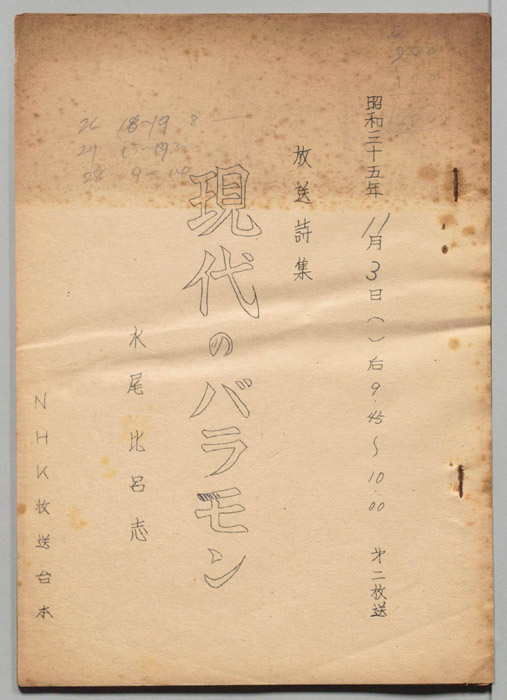 昭和三十五年 11月3日（ ）后9.45〜10.00 才二放送
放送詩集
現代のバラモン
水尾比呂志
NHK放送台本
26 18-19